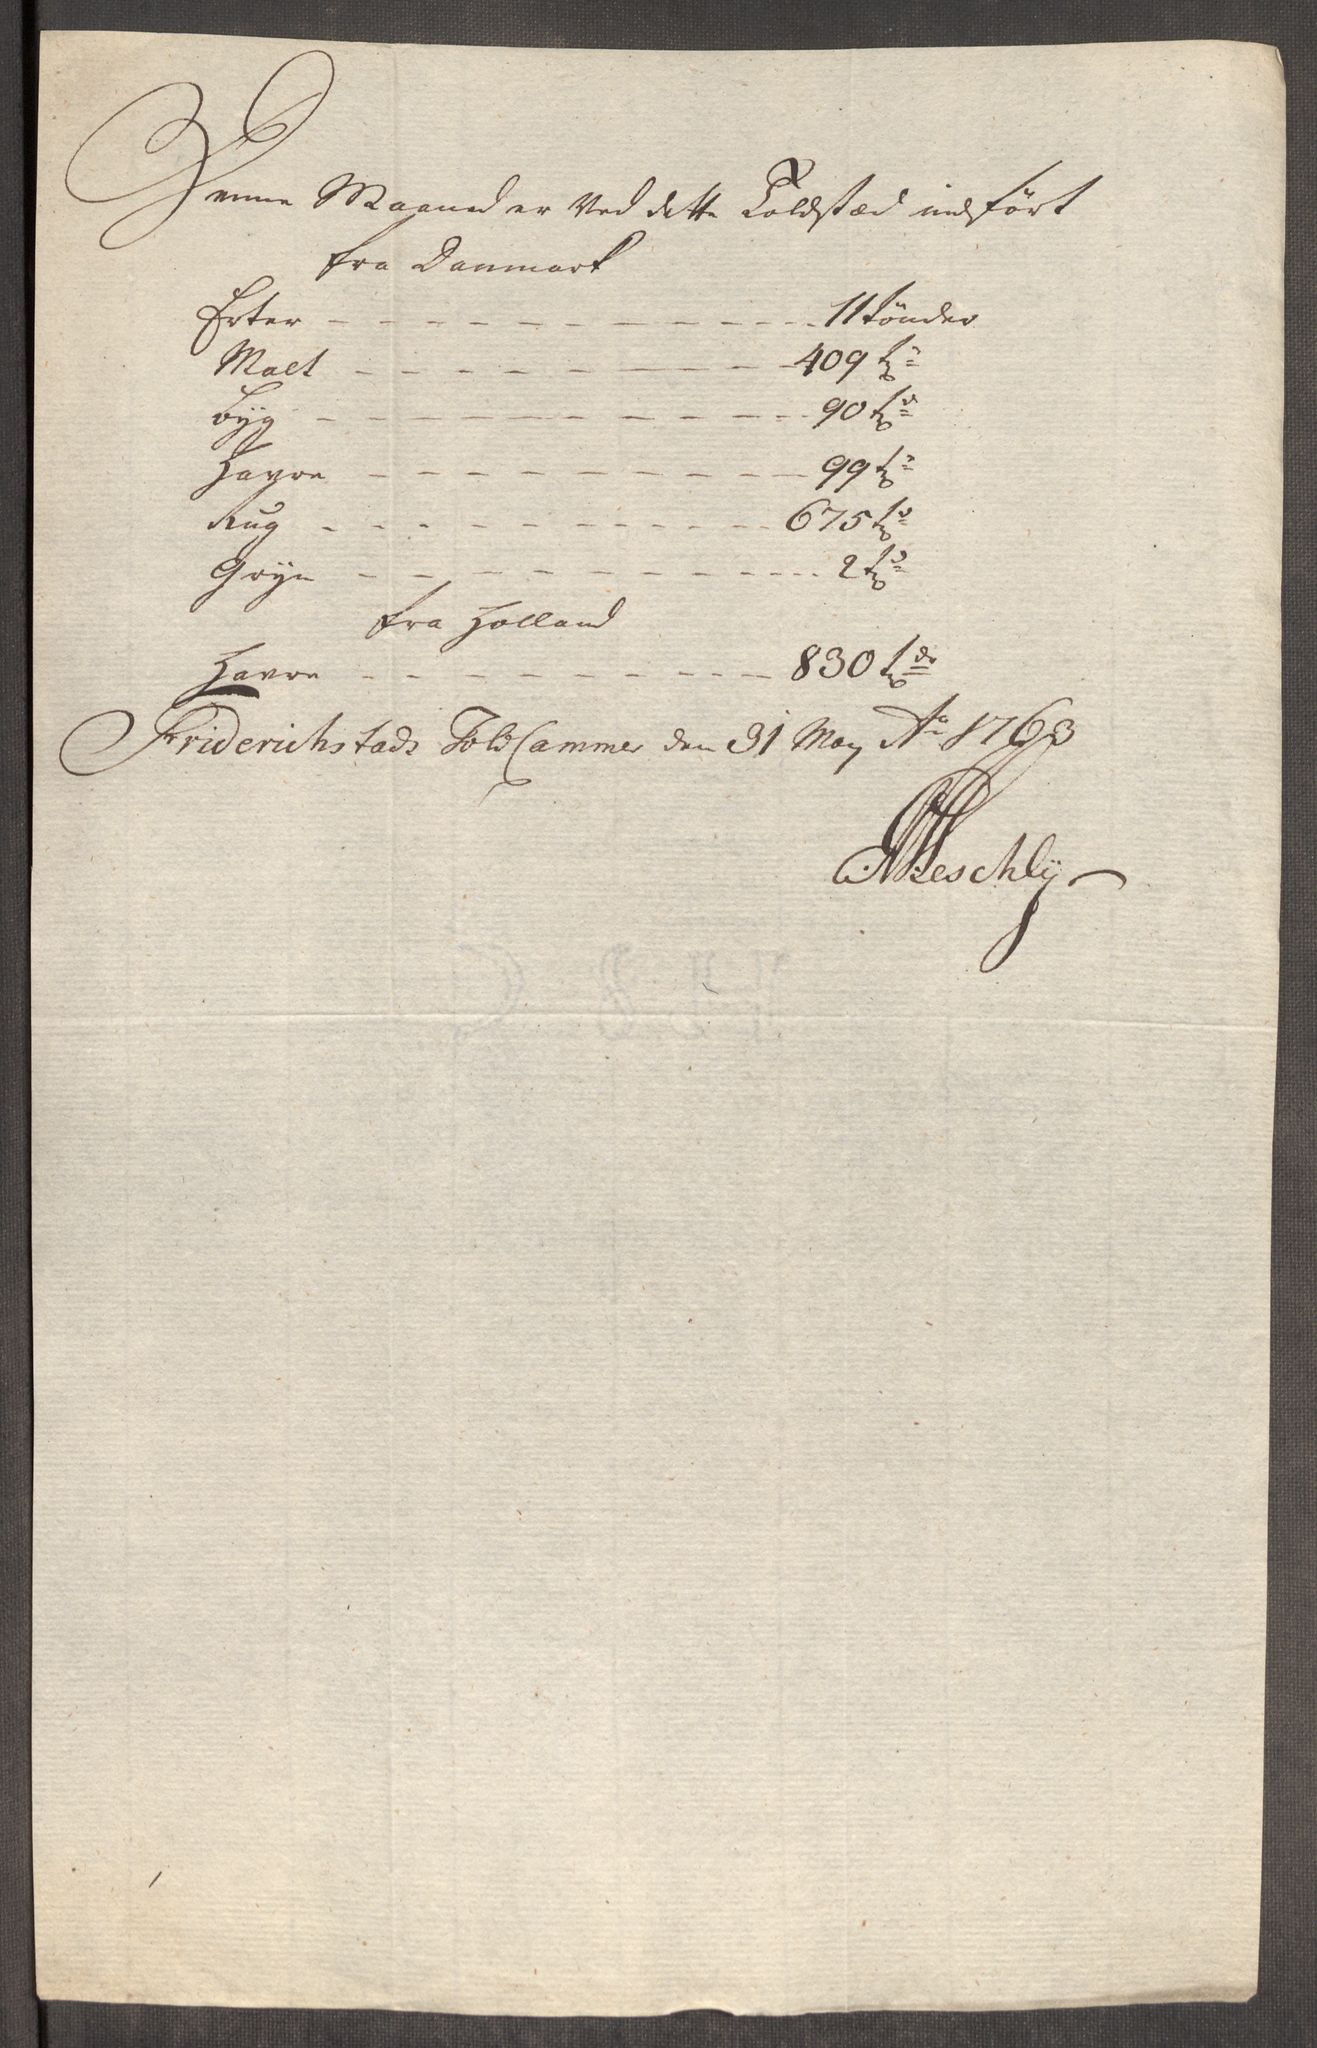 Denne Maaned er Ved dette Toldstæd indført
fra Danmark
Erter - - - - - - - - - - - - - 11 tönder
Malt - - - - - - - - - - - - 409 td
Byg - - - - - - - - - - - - 90 tdr
Havre - - - - - - - - - - - 99 td
Rug - - - - - - - - - - - - 675 td
Gryn - - - - - - - - - - - - 2 td
fra Holland
Havre - - - - - - - - - - - 830 tdr
Friderichstads Told Cammer den 31 May Ao 1763